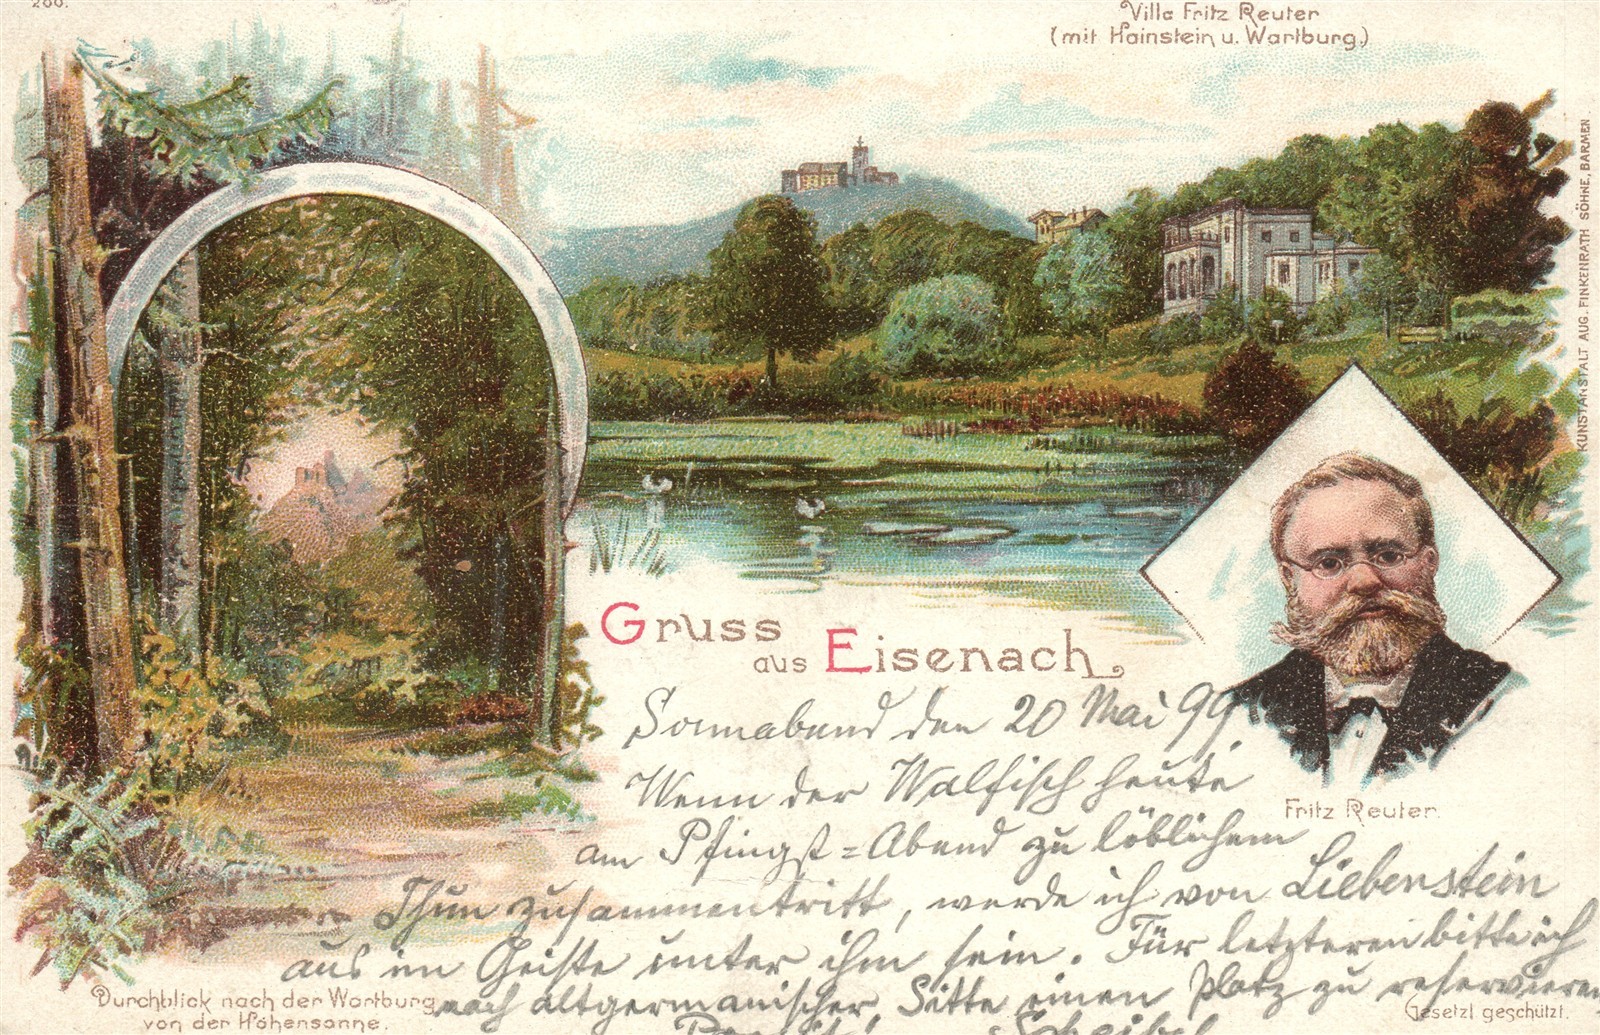 266.
Villa Fritz Reuter
(mit Hainstein u. Wartburg.)
KUNSTANSTALT AUG. FINKENRATH SÖHNE, BARMEN.
Gruss
aus Eisenach
Sonnabend den 20 Mai 99
Wenn der Walfisch heute
Fritz Reuter.
am Pfingst=Abend zu löblichem
Thun zusammentritt, werde ich von Liebenstein
aus im Geiste unter ihm sein. Für letzteren bitte ich
nach altgermanischer Sitte einen Platz zu reservieren
Scheibel
Durchblick nach der Wartburg
von der Hohensonne.
Gesetzl. geschützt.